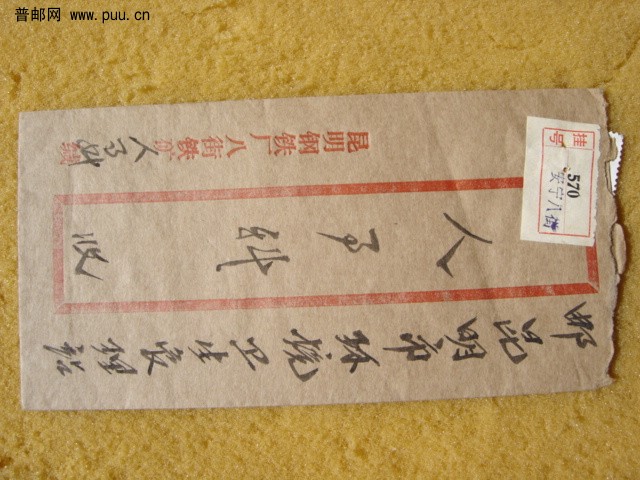 普邮网 www.puu.cn
挂号
570
安宁八街
邮昆明市环境卫生管理站
人事科 收
昆明钢铁厂八街铁矿人事科缄